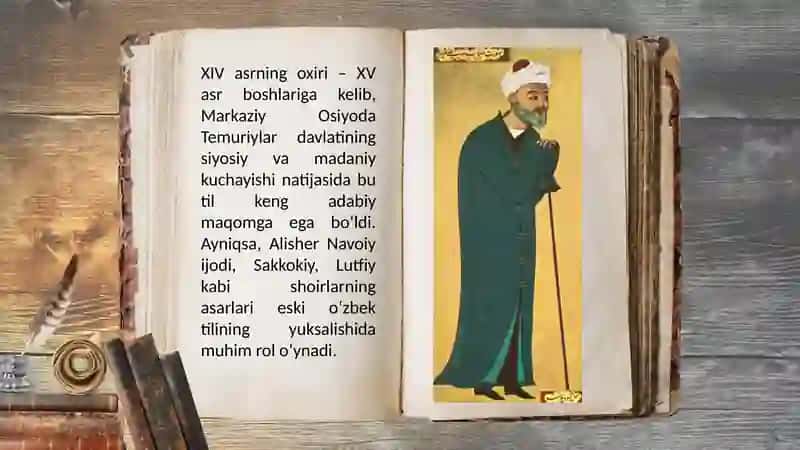 XIV asrning oxiri – XV
asr boshlariga kelib,
Markaziy Osiyoda
Temuriylar davlatining
siyosiy va madaniy
kuchayishi natijasida bu
til keng adabiy
maqomga ega bo‘ldi.
Ayniqsa, Alisher Navoiy
ijodi, Sakkokiy, Lutfiy
kabi shoirlarning
asarlari eski o‘zbek
tilining yuksalishida
muhim rol o‘ynadi.